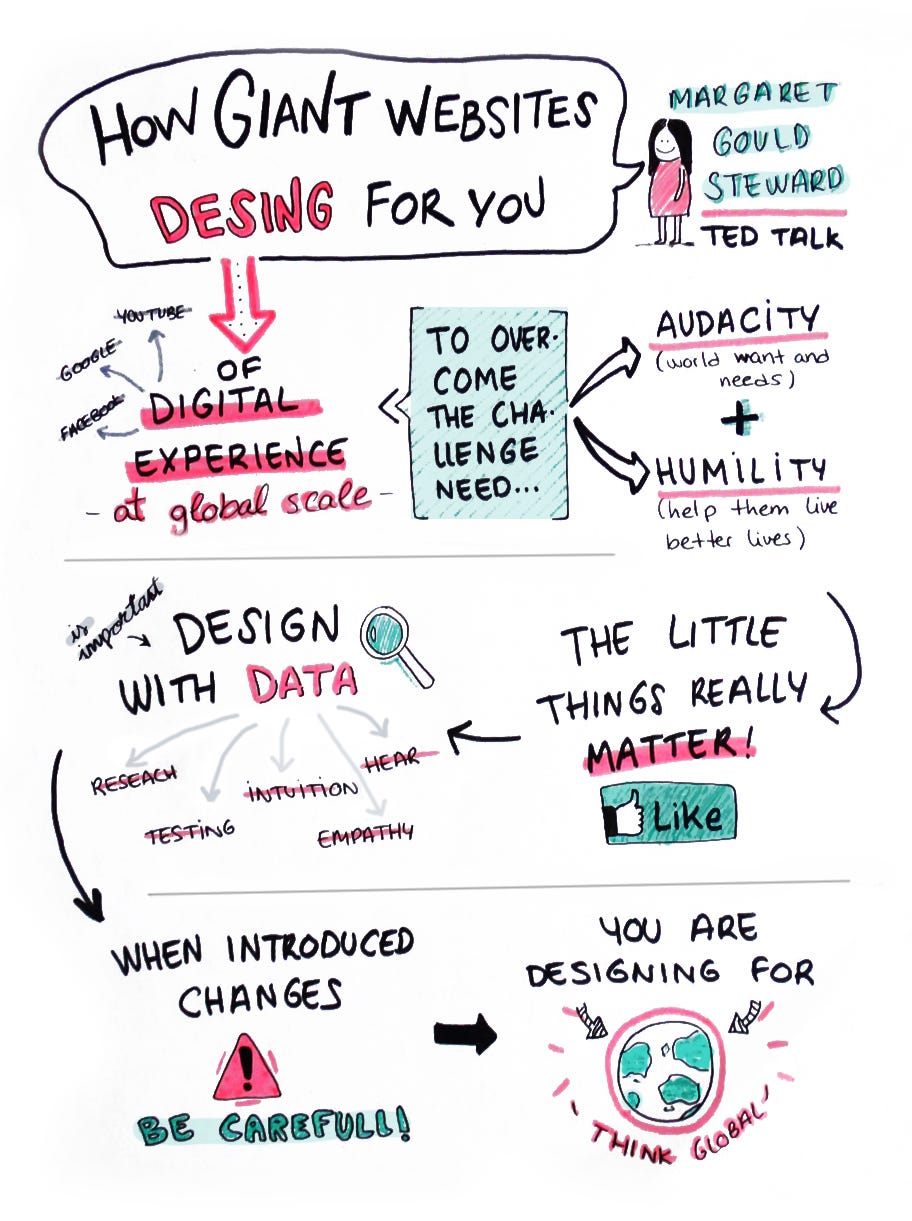 HOW GIANT WEBSITES
DESING FOR YOU
MARGARET
GOULD
STEWARD
TED TALK
YOUTUBE
GOOGLE
FACEBOOK
OF
DIGITAL
EXPERIENCE
- at global scale -
TO OVER-
COME
THE CHA-
LLENGE
NEED...
AUDACiTY
(world want and
needs)
+
HUMiLiTY
(help them live
better lives)
is
important
DESIGN
WITH DATA
RESEACH
TESTING
iNTUiTiON
EMPATHY
HEAR
THE LITTLE
THINGS REALLY
MATTER!
Like
WHEN INTRODUCED
CHANGES
!
BE CAREFULL!
YOU ARE
DESIGNING FOR
' THINK GLOBAL '